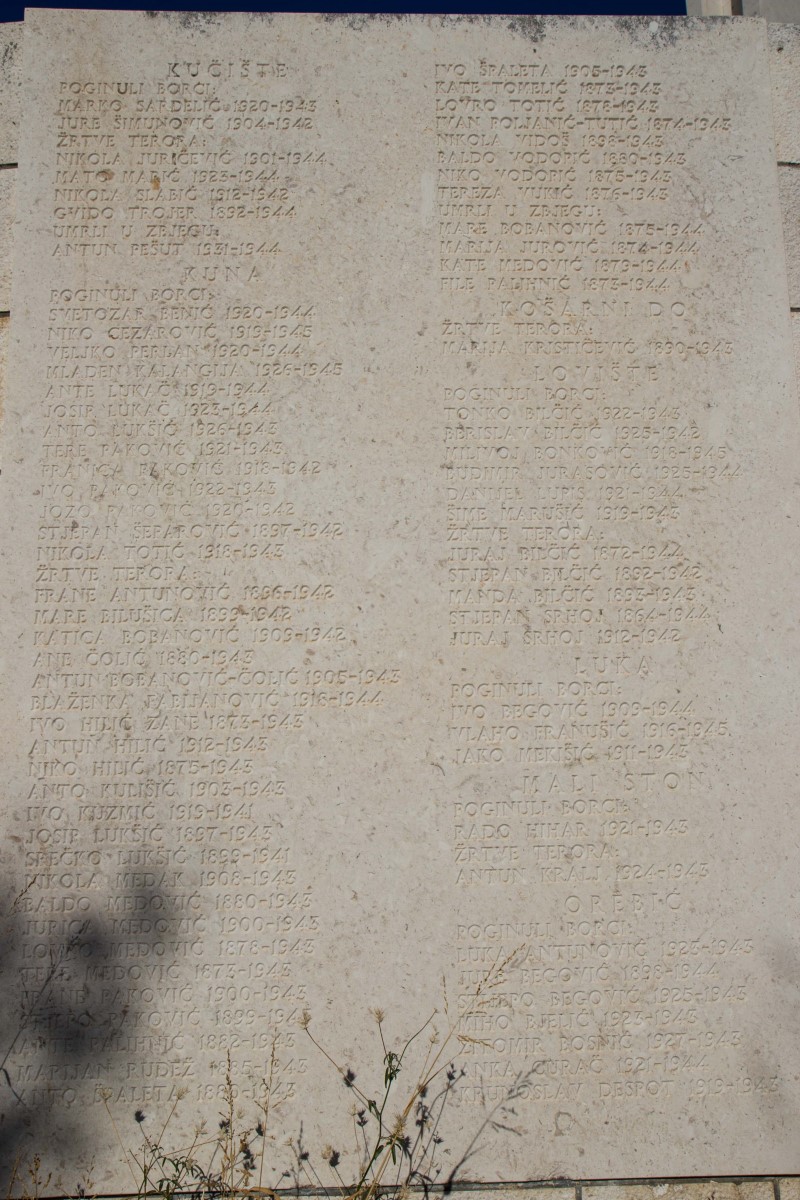 KUČIŠTE
POGINULI BORCI:
MARKO SARDELIĆ 1920-1943
JURE ŠIMUNOVIĆ 1904-1942
ŽRTVE TERORA:
NIKOLA JURIČEVIĆ 1901-1944
MATO MARIĆ 1923-1944
NIKOLA SLABIĆ 1912-1942
GVIDO TROJER 1892-1944
UMRLI U ZBJEGU:
ANTUN PEŠUT 1931-1944
KUNA
POGINULI BORCI:
SVETOZAR BENIĆ 1920-1944
NIKO CEZAROVIĆ 1919-1945
VELJKO FERLAN 1920-1944
MLADEN KALANGIJA 1926-1945
ANTE LUKAČ 1919-1944
JOSIP LUKAČ 1923-1944
ANTO LUKŠIĆ 1926-1943
TERE PAKOVIĆ 1921-1943
FRANICA PAKOVIĆ 1918-1942
IVO PAKOVIĆ 1922-1943
JOZO PAKOVIĆ 1920-1942
STJEPAN ŠEPAROVIĆ 1897-1942
NIKOLA TOTIĆ 1918-1943
ŽRTVE TERORA:
FRANE ANTUNOVIĆ 1896-1942
MARE BILUŠICA 1899-1942
KATICA BOBANOVIĆ 1909-1942
ANE ČOLIĆ 1880-1943
ANTUN BOBANOVIĆ-ČOLIĆ 1905-1943
BLAŽENKA FABIJANOVIĆ 1918-1944
IVO HILIĆ ZANE 1873-1943
ANTUN HILIĆ 1912-1943
NIKO HILIĆ 1875-1943
ANTO KULIŠIĆ 1903-1943
IVO KUZMIĆ 1919-1941
JOSIP LUKŠIĆ 1897-1943
SREĆKO LUKŠIĆ 1899-1941
NIKOLA MEDAK 1908-1943
BALDO MEDOVIĆ 1880-1943
JURICA MEDOVIĆ 1900-1943
LOVRO MEDOVIĆ 1878-1943
TERE MEDOVIĆ 1873-1943
FRANE PAKOVIĆ 1900-1943
PAKOVIĆ 1899-1943
ANTE PALIHNIĆ 1882-1943
MARIJAN RUDEŽ 1885-1943
ANTO ŠPALETA 1880-1943
IVO ŠPALETA 1905-1943
KATE TOMELIĆ 1873-1943
LOVRO TOTIĆ 1878-1943
IVAN POLJANIĆ-TUTIĆ 1874-1943
NIKOLA VIDOŠ 1898-1943
BALDO VODOPIĆ 1880-1943
NIKO VODOPIĆ 1875-1943
TEREZA VUKIĆ 1876-1943
UMRLI U ZBJEGU:
MARE BOBANOVIĆ 1875-1944
MARIJA JUROVIĆ 1874-1944
KATE MEDOVIĆ 1879-1944
FILE PALIHNIĆ 1873-1944
KOŠARNI DO
ŽRTVE TERORA:
MARIJA KRISTIČEVIĆ 1890-1943
LOVIŠTE
POGINULI BORCI:
TONKO BILČIĆ 1922-1943
BERISLAV BILČIĆ 1925-1942
MILIVOJ BONKOVIĆ 1918-1945
LUDIMIR JURASOVIĆ 1925-1944
DANIJEL LUPIS 1921-1944
ŠIME MARUŠIĆ 1919-1943
ŽRTVE TERORA:
JURAJ BILČIĆ 1872-1944
STJEPAN BILČIĆ 1892-1942
MANDA BILČIĆ 1893-1943
STJEPAN SRHOJ 1864-1944
JURAJ SRHOJ 1912-1942
LUKA
POGINULI BORCI:
IVO BEGOVIĆ 1909-1944
VLAHO FRANUŠIĆ 1916-1945
JAKO MEKIŠIĆ 1911-1943
MALI STON
POGINULI BORCI:
RADO HIHAR 1921-1943
ŽRTVE TERORA:
ANTUN KRALJ 1924-1943
OREBIĆ
POGINULI BORCI:
LUKA ANTUNOVIĆ 1923-1943
JURE BEGOVIĆ 1898-1944
STJEPO BEGOVIĆ 1925-1943
MIHO BJELIĆ 1923-1943
ŽITOMIR BOSNIĆ 1927-1943
ANKA CURAČ 1921-1944
KRUNOSLAV DESPOT 1919-1943